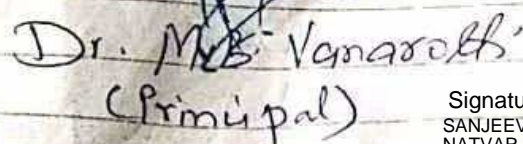 Dr. M.B. Vanaroth
(Principal)
Signatu
SANJEEV
NATVAR